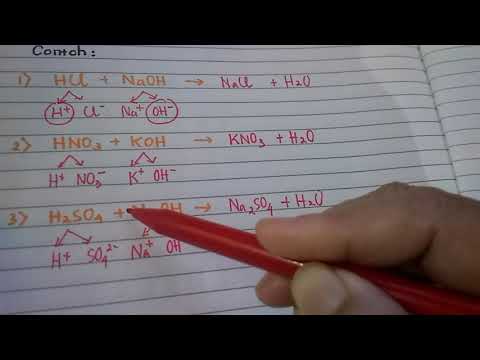 Contoh :
1) HCl + NaOH → NaCl + H₂O
H⁺ Cl⁻ Na⁺ OH⁻
2) HNO₃ + KOH → KNO₃ + H₂O
H⁺ NO₃⁻ K⁺ OH⁻
3) H₂SO₄ + OH → Na₂SO₄ + H₂O
H⁺ SO₄²⁻ Na⁺ OH